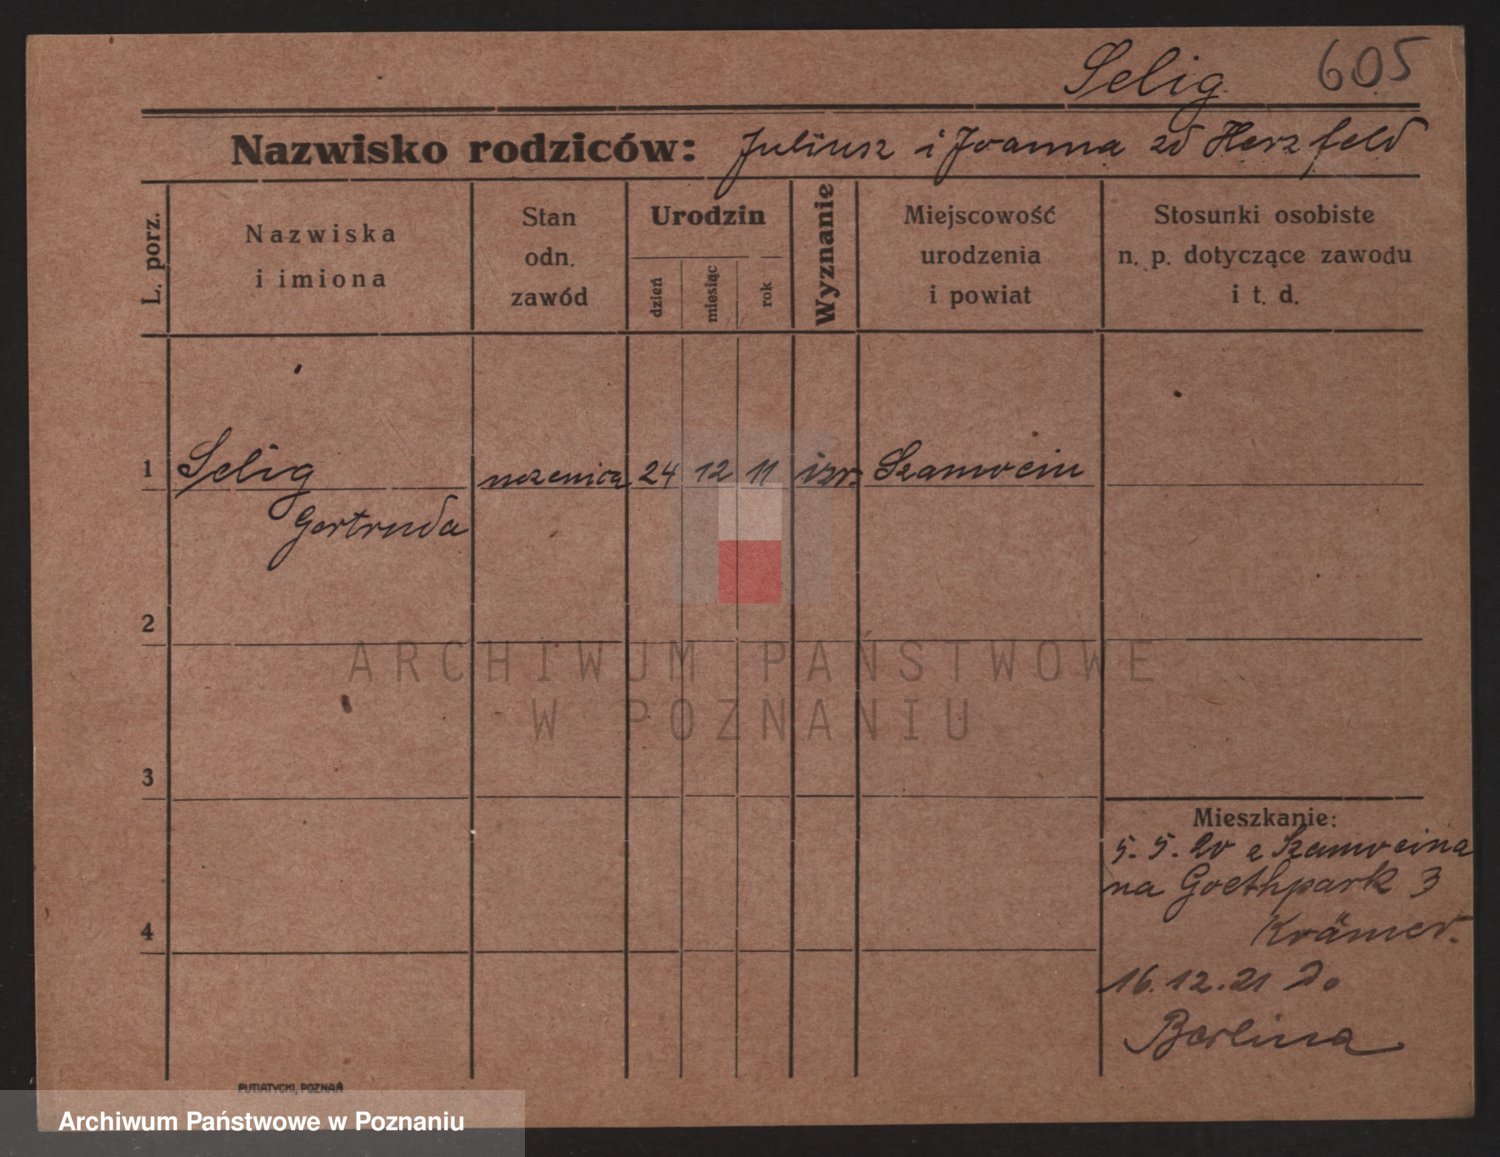 Selig 605
Nazwisko rodziców: Juliusz i Joanna zd Herzfeld
L. porz.
Nazwiska
i imiona
Stan
odn.
zawód
Urodzin
dzień
miesiąc
rok
Wyznanie
Miejscowość
urodzenia
i powiat
Stosunki osobiste
n. p. dotyczące zawodu
i t. d.
1 Selig uczenica 24 12 11 izr. Szamocin
Gertruda
2
3
4
Mieszkanie:
5. 5. 20 z Szamocina
na Goethpark 3
Krämer.
16.12.21 do
Berlina
PUTIATYCKI, POZNAŃ
ARCHIWUM PAŃSTWOWE
W POZNANIU
Archiwum Państwowe w Poznaniu